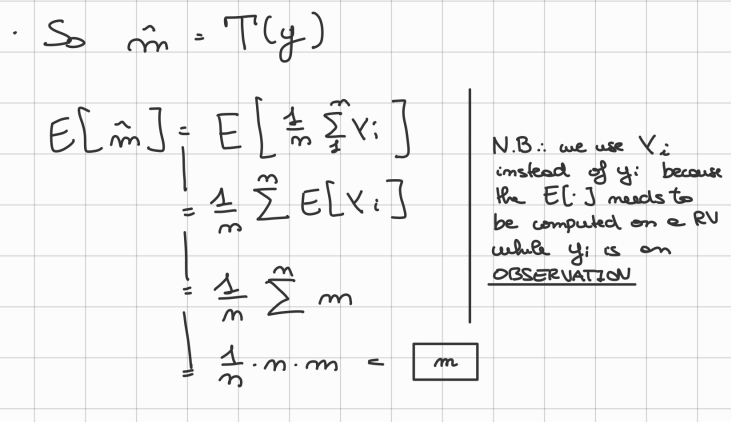 · So m̂ = T(y)
E[m̂] = E[1/n Σ₁ⁿ Yi]
= 1/n Σⁿ E[Yi]
= 1/n Σⁿ m
= 1/n · n · m = m
N.B.: we use Yi
instead of yi because
the E[·] needs to
be computed on a RV
while yi is an
OBSERVATION